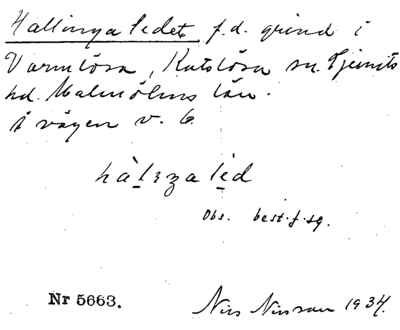 Hallinga ledet f.d. grind i
Varmlösa, Katslösa sn. Ljunits
hd. Malmöhus län.
I vägen v. 6
Obs. best. f. sg.
Nr 5663. Nils Nilsson 1934.